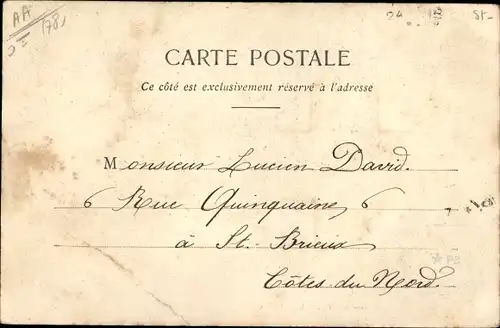 AA
1781
St-
CARTE POSTALE
Ce côté est exclusivement réservé à l'adresse
Monsieur Lucien David.
6 Rue Quinquaine, 6
à St. Brieux
Côtes du Nord.